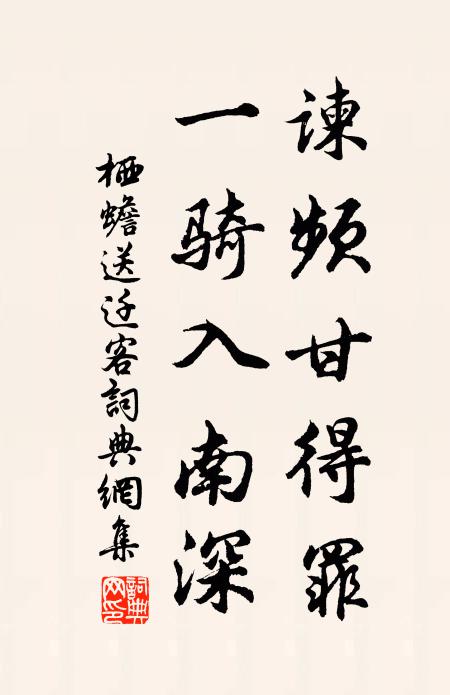 諫頻甘得罪
一騎入南深
栖蟾送迁客詞典網集
詞典网印